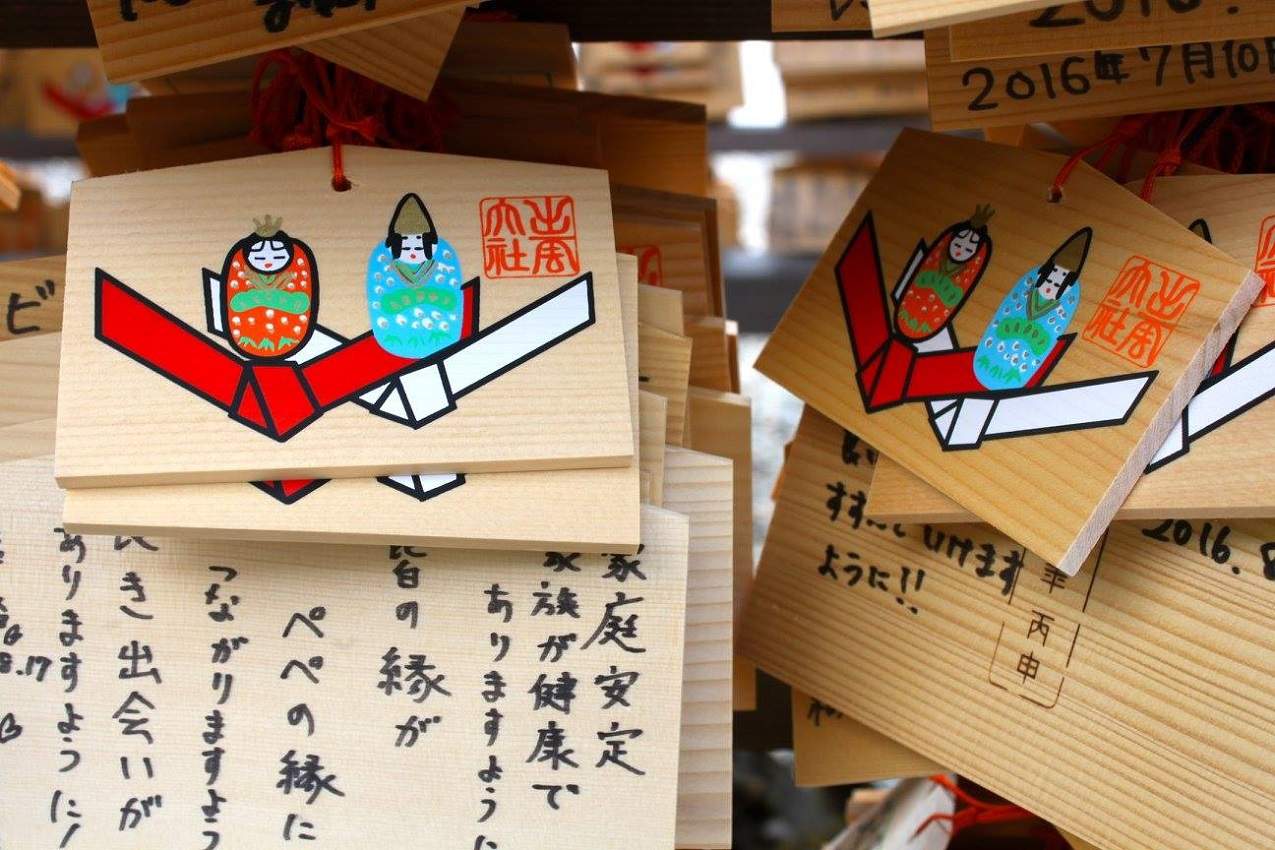 2016.
2016年7月10日
出雲
大社
出雲
大社
ビ
家庭安定
家族が健康で
ありますように
皆の縁が
ペペの縁に
つながりますよう
良き出会いが
ありますように!
8.17
すすんでいけます
ように!!
年丙申
2016.8